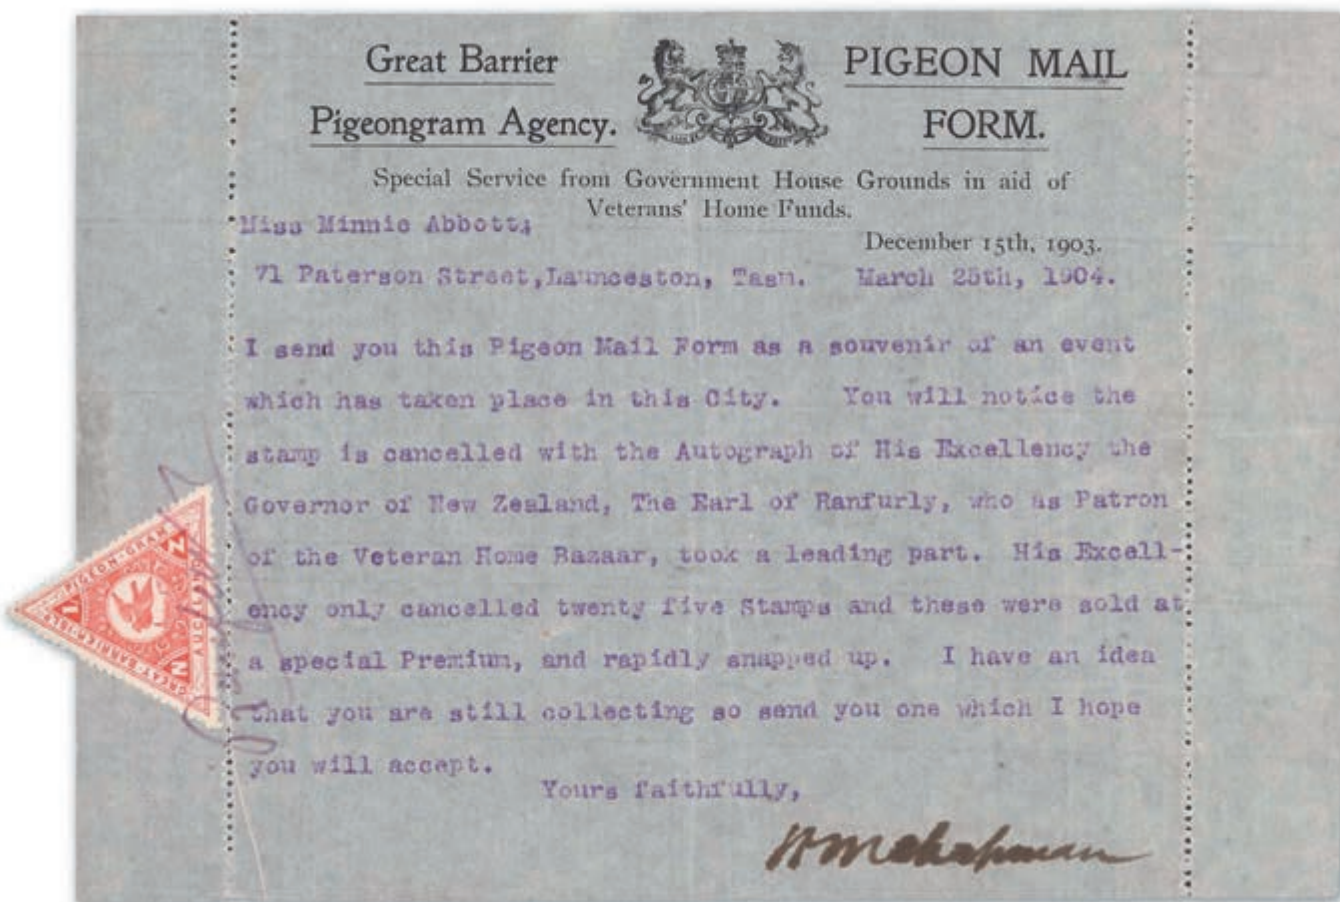 Great Barrier
Pigeongram Agency.
PIGEON MAIL
FORM.
Special Service from Government House Grounds in aid of
Veterans' Home Funds.
Miss Minnie Abbott;
December 15th, 1903.
71 Paterson Street,Launceston, Tasn. March 25th, 1904.
I send you this Pigeon Mail Form as a souvenir of an event
which has taken place in this City. You will notice the
stamp is cancelled with the Autograph of His Excellency the
Governor of New Zealand, The Earl of Ranfurly, who as Patron
of the Veteran Home Bazaar, took a leading part. His Excell-
ency only cancelled twenty five Stamps and these were sold at
a special Premium, and rapidly snapped up. I have an idea
that you are still collecting so send you one which I hope
you will accept.
Yours faithfully,
H M Chapman
PIGEON-GRAM
GREAT BARRIER ISLD
AGENCY
1
N
Z